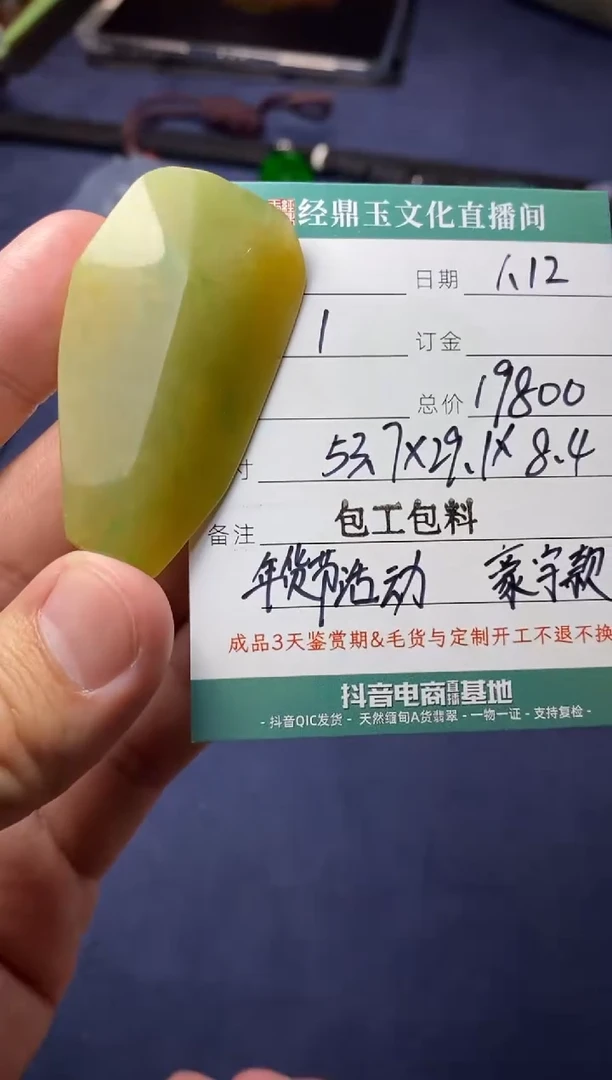 经鼎玉文化直播间
日期 1.12
1 订金
总价 19800
寸 53.7×29.1×8.4
备注 包工包料
年货节活动 豪宇款
成品3天鉴赏期&毛货与定制开工不退不换
抖音电商直播基地
- 抖音QIC发货 - 天然缅甸A货翡翠 - 一物一证 - 支持复检 -